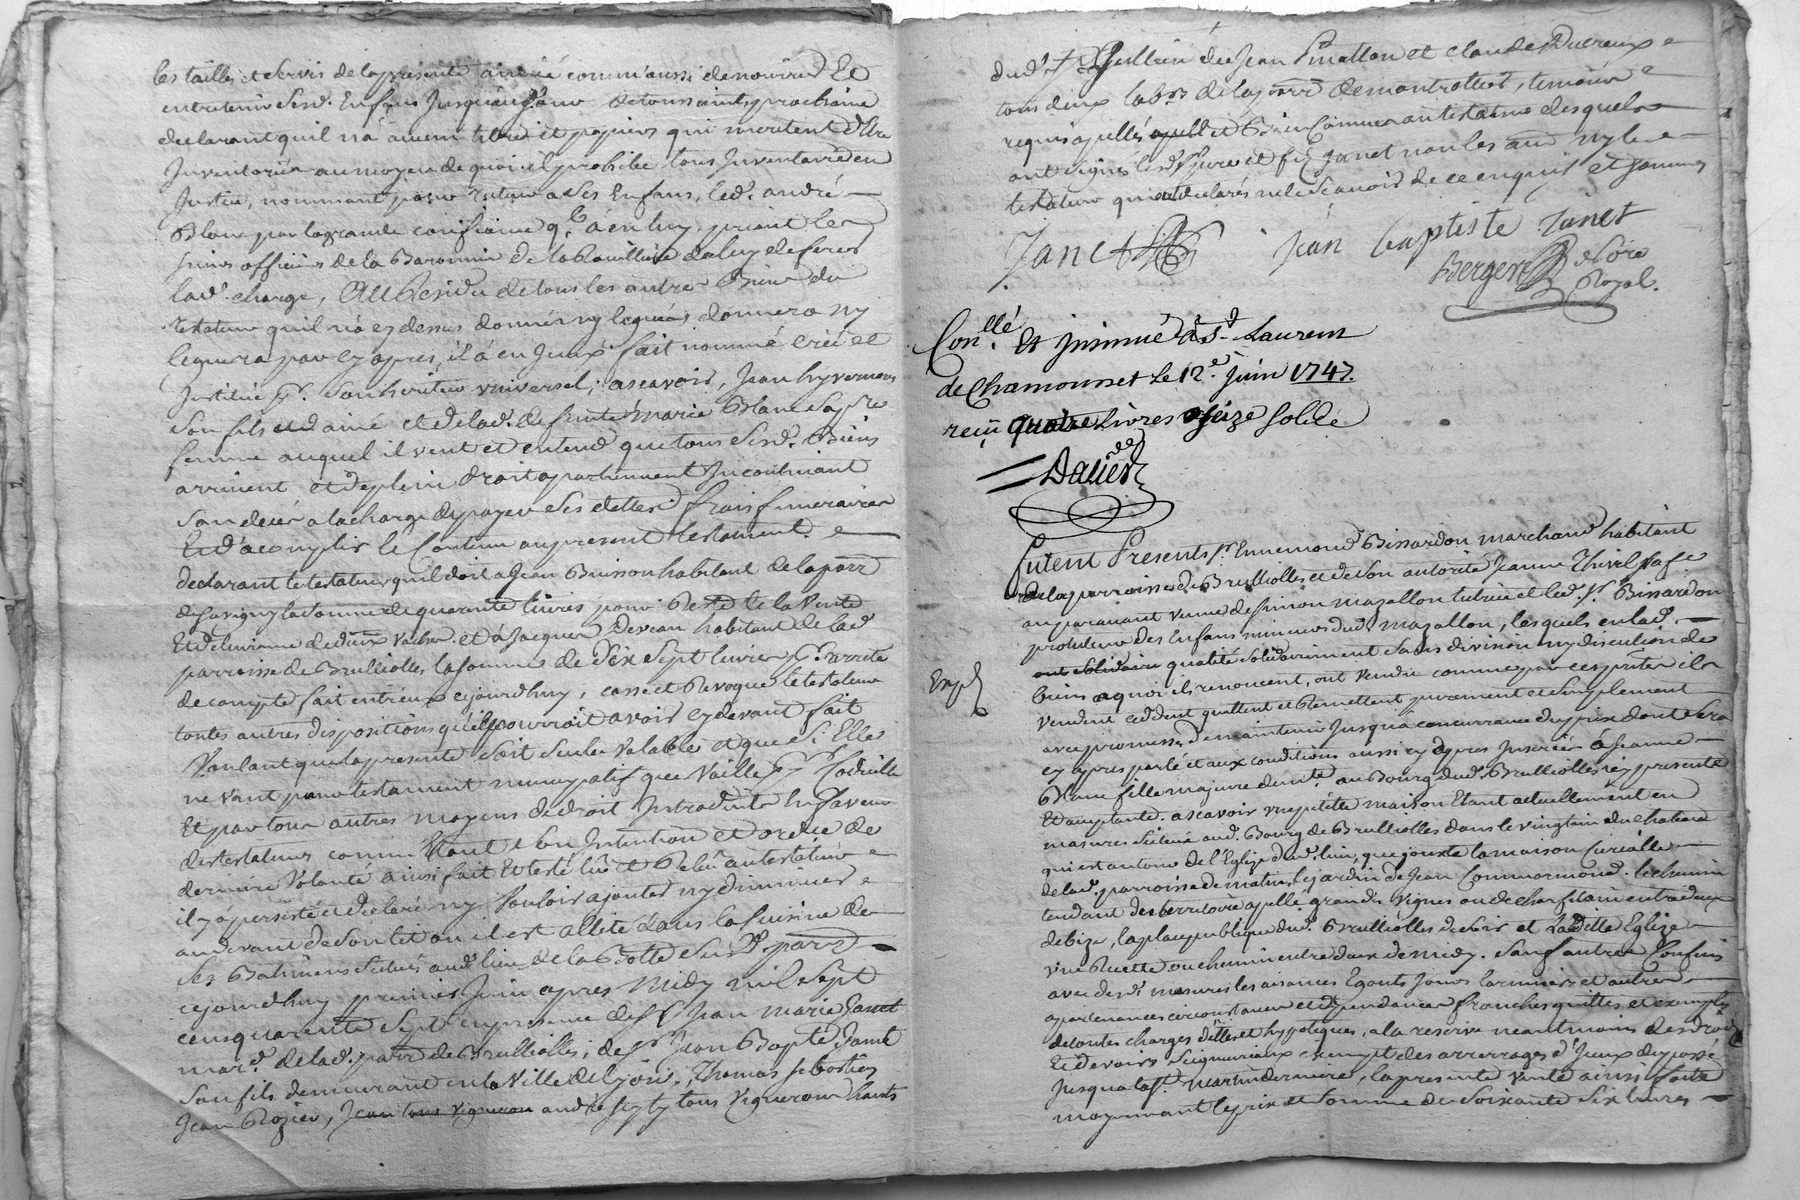 les tailles et servis de la presente année comm'aussi de nourrir Et
entretenir sesd. Enfans Jusqu'au jour de toussaints prochaine
declarant quil n'a aucun titres et papiers qui meritent d'Etre
Inventoriés au moyen de quoi il prohibe tous Inventaire en
Justice, nommant pour tuteur a ses Enfans, led. andré
Blanc par la grande confiance qu'il a en luy, priant les
srs officiers de la Baronnie de la Rouilliere de luy deferer
lad. charge, Au Residu de tous les autres Biens du
testateur quil n'a cy dessus donnés ny legués donnera ny
leguera par cy apres, il a en Iceux fait nommé créé et
Institué pr. son heritier universel; ascavoir, Jean hyvernens
son fils et ainé et de lad. defunte marie Blanc sa pre
femme auquel il veut et entend que tous sesd. Biens
arrivent et de plein droit apartiennent Incontinant
son decés a la charge de payer ses dettes frais funeraires
Et d'acomplir le Contenu au present testament.
declarant le testateur quil doit a Jean Buisson habitant de la parr
de savigny la somme de quarante livres pour Reste de la Vente
Et delivrance de deux vaches et a Jacques Deveau habitant de lad
parroisse de Brulliolles la somme de Dix sept livres pr. arreté
de compte fait entr'eux cejourd'huy, casse et Revoque le testateur
toutes autres dispositions qu'il pourroit avoir cy devant fait
Voulant que la presente soit seule valable et que si Elle
ne vaut pour testament nuncupatif que vaille pr. Codicille
Et par tous autres moyens de droit Introduits En faveur
des testateurs comm'Etant son Intention et ordre de
derniere Volonté ainsi fait Et testé lû et Relû au testateur
il y a persisté et declaré ny Vouloir ajouter ny diminuer
au devant de son lit ou il est allité dans la Cuisine de
ses Batimens situés aud. lieu de la Rotte susd. parr
cejourd'huy premier Juin apres midy mil sept
cens quarente sept en presence de sr Jean marie Janet
mar.d de lad. parr de Brulliolles; de sr Jean Bapte Janet
son fils demeurant en la Ville de Lyon, Thomas sebastien
Jean Rozier, Jean tous vigneron andre tous Vignerons hants
dud. Jean Pinatton et claude Ducreux
tous deux lab.rs de la parr de montrottier, temoins
requis apellés et Bien Connus au testateur desquels
ont signés lesd. srs pere et fils Janet non les autres ny le
testateur qui ont declarés ne le scavoir de ce enquis et sommés
Janet Jean baptiste Janet
Berger Nore
Royal.
Con.llé Et Insinué a St. Laurent
de Chamousset Le 12.e Juin 1747.
reçu quatre Livres seize solds
Dalier
Furent Presents sr. Ennemond Bissardon marchand habitant
de la parroisse de Brulliolles et de son autorité Jeanne Thivel sa fe
auparavant veuve de simon mazallon tutrice et led. sr. Bissardon
protuteur des Enfans mineurs dud. mazallon, lesquels en lad.
ont solidaire qualité solidairement sans division ny discution de
Expd
biens a quoi ils renoncent, ont vendu comme par ces presentes ils
vendent cedent quittent et Remettent purement et simplement
avec promesse de maintenir Jusqu'a concurrance du prix dont sera
cy apres parlé et aux conditions aussi cy apres Inserées a Jeanne
Blanc fille majeure demte. au Bourg dud. Brulliolles icy presente
Et acceptante. ascavoir une petite maison Etant actuellement en
masures située aud. Bourg de Brulliolles dans le vingtain du chateau
qui est autour de l'Eglise dud. lieu, que jouxte la maison curialle
de lad. parroisse de matin, le jardin de Jean Commarmond. le chemin
tendant des territoire apellé grandes Vignes ou de charfetain entredeux
de bize, la place publique dud. Brulliolles de soir et Ladette Eglize
une Ruette ou chemin entre deux de midy. sauf autres Confins
avec desd. masures les aisances Egouts Jours larmiers et autres
apartenances circonstances et dependances franches quittes et exemptes
de toutes charges dettes et hypoteques, a la reserve neantmoins des droits
Et devoirs seigneuriaux exempt des arrerages d'Iceux du passé
Jusqu'a la st. martin derniere, la presente vente ainsi faite
moyennant le prix et somme de soixante six livres